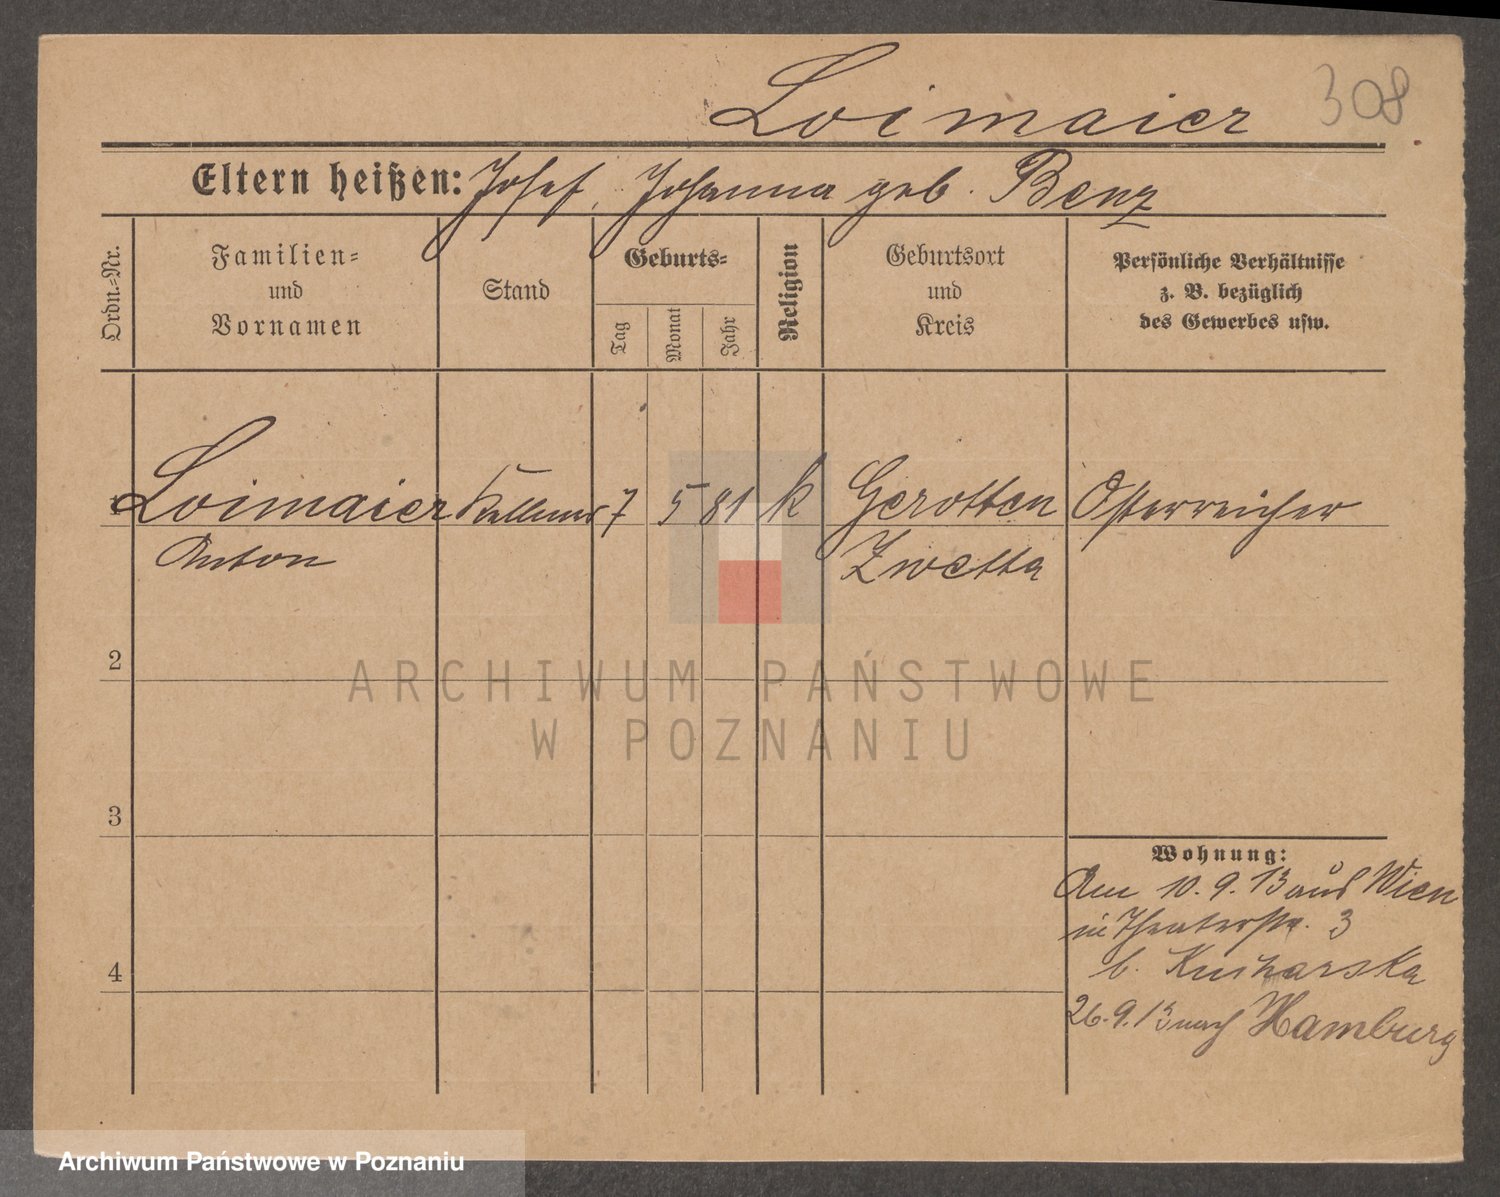 308
Loimaier
Eltern heißen: Josef, Johanna geb. Benz
Ordn.-Nr.
Familien-
und
Vornamen
Stand
Geburts-
Tag
Monat
Jahr
Religion
Geburtsort
und
Kreis
Persönliche Verhältnisse
z. B. bezüglich
des Gewerbes usw.
1 Loimaier Kellner 7 5 81 k Gerotten Österreicher
Anton Zwetta
2
ARCHIWUM PAŃSTWOWE
W POZNANIU
3
Wohnung:
Am 10. 9. 13 aus Wien
in Theaterstr. 3
b. Kucharska
4
26. 9. 13 nach Hamburg
Archiwum Państwowe w Poznaniu